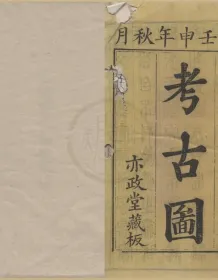 壬申年秋月
考古圖
亦政堂藏板